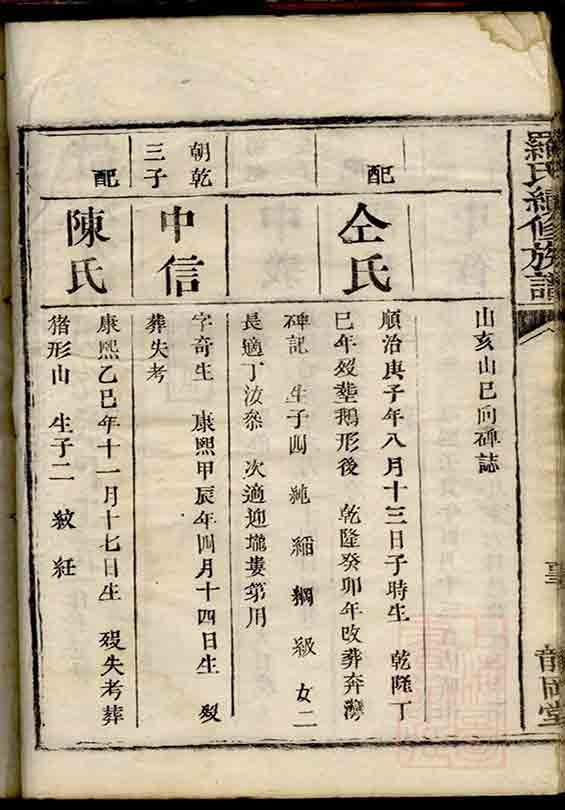 羅氏續修族譜
山亥山巳向碑誌
配
仝氏
順治庚子年八月十三日子時生 乾隆丁
巳年歿塟鵝形後 乾隆癸卯年改葬奔灣
碑記 生子四 純 緇 綱 級 女二
長適丁汝叅 次適迎壠婁第用
朝乾
三子
中信
字奇生 康熙甲辰年四月十四日生 歿
葬失考
配
陳氏
康熙乙巳年十一月十七日生 歿失考葬
猪形山 生子二 紋 紝
龍岡堂